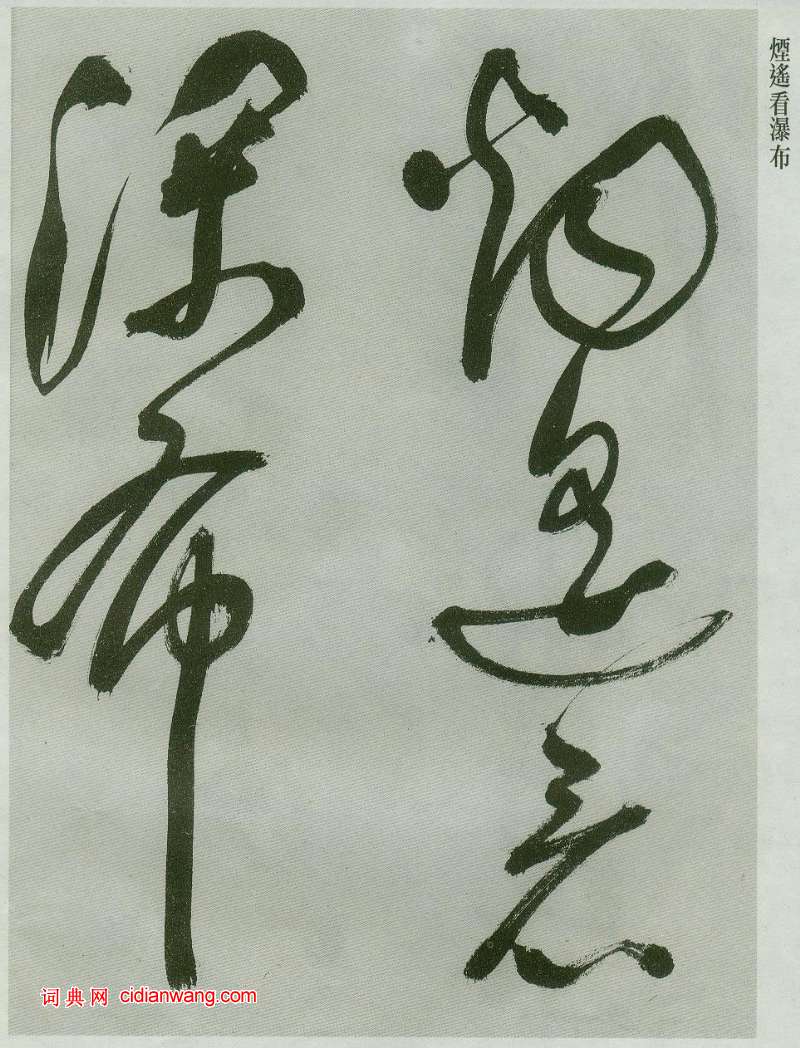 煙遙看瀑布
烟遥看
瀑布
词典网 cidianwang.com